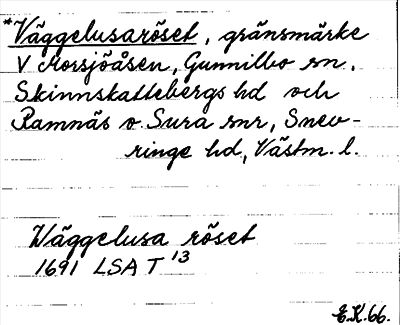 *Väggelusaröset, gränsmärke
V Korsjöåsen, Gunnilbo sn,
Skinnskattebergs hd och
Ramnäs o. Sura snr, Snev-
ringe hd, Västm. l.
Wäggelusa röset
1691 LSA T 13
E.K. 66.